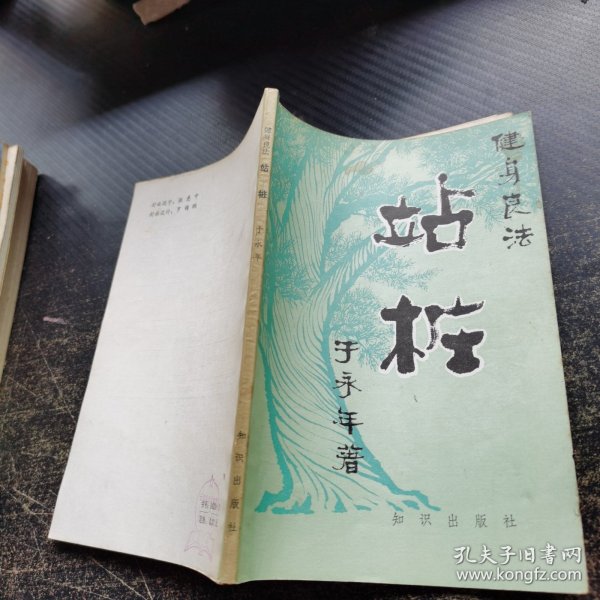 健身良法
站桩
于永年著
知识出版社
健身良法
站桩
于永年
知识出版社
孔夫子旧书网
www.kongfz.com